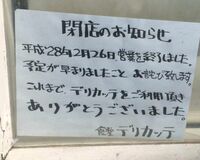 閉店のお知らせ
平成28年12月26日営業を終了しました。
予定が早まりましたことお詫び致します。
これまで デリカッテをご利用頂き
ありがとうございました。
デリカッテ